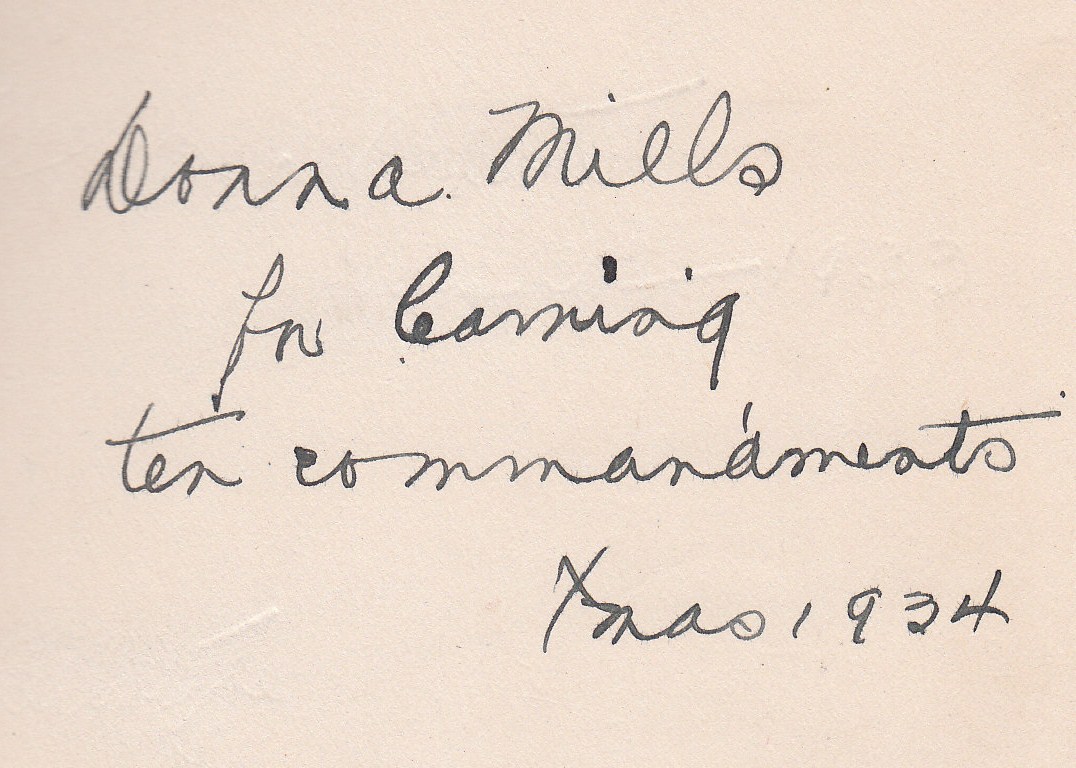 Donna Mills
for learning
ten commandments
Xmas 1934